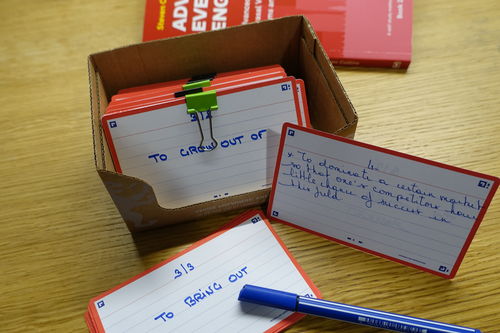 Steven C
ADV
EVE
ENG
Collins
3/3
TO GROW OUT OF
* To dominate a certain market
so that one's competitors have
little chance of success in
this field
3/3
TO BRING OUT